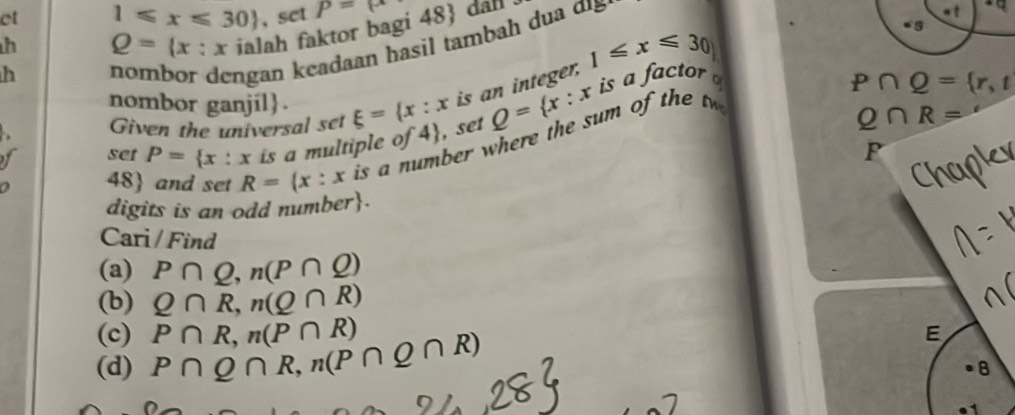 et
1 ⩽ x ⩽ 30}, set P = {x
Q = {x : x ialah faktor bagi 48} dan
nombor dengan keadaan hasil tambah dua
nombor ganjil}.
Given the universal set ξ = {x : x is an integer, 1 ⩽ x ⩽ 30}
set P = {x : x is a multiple of 4}, set Q = {x : x is a factor of
48} and set R = {x : x is a number where the sum of the two
digits is an odd number}.
Cari / Find
(a) P ∩ Q, n(P ∩ Q)
(b) Q ∩ R, n(Q ∩ R)
(c) P ∩ R, n(P ∩ R)
(d) P ∩ Q ∩ R, n(P ∩ Q ∩ R)
24, 28}
•s •t •q
P ∩ Q = {r, t
Q ∩ R =
P
Chapter
n =
n(
E
•8
•1